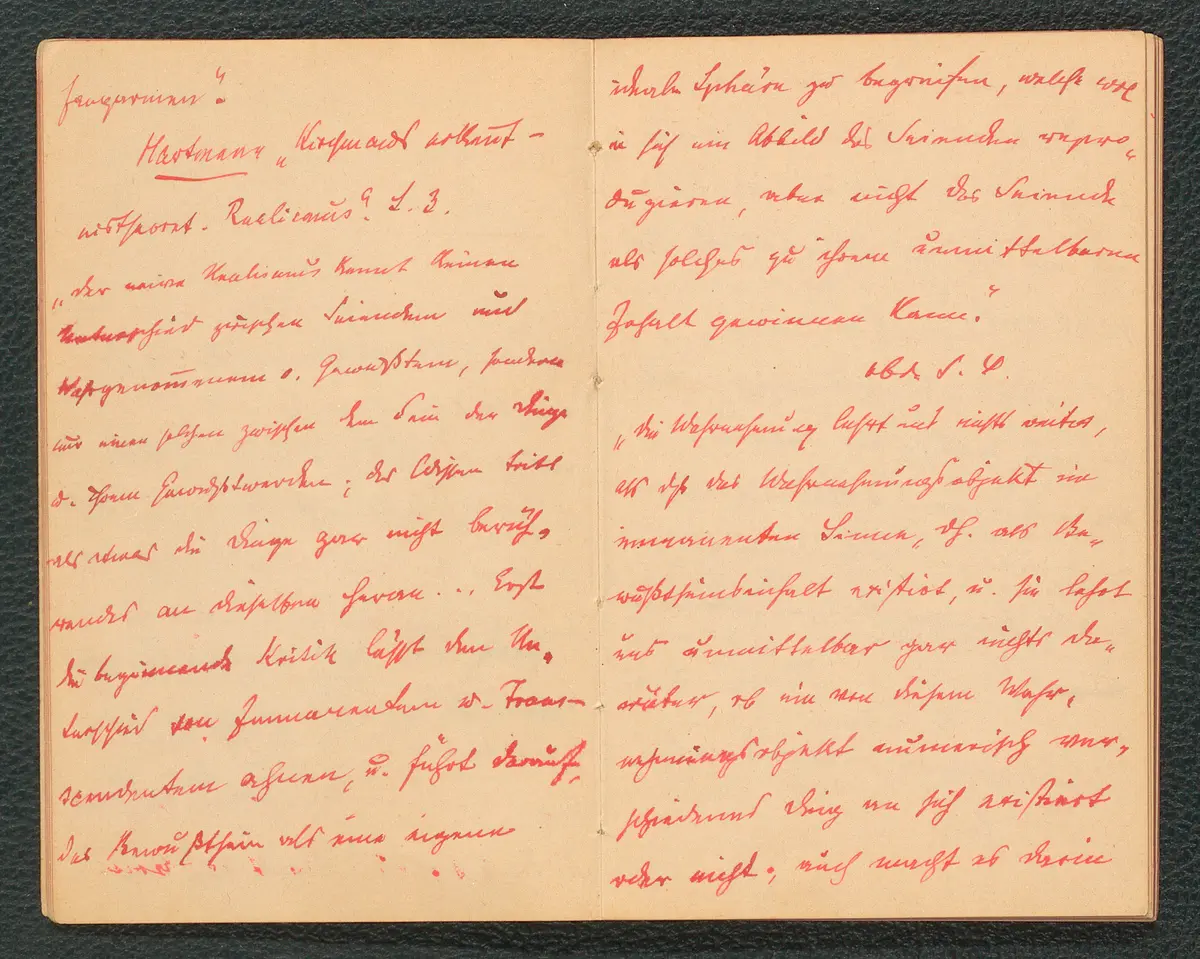 fangarmen“.
Hartmann „Kirchmanns erkennt-
nistheoret. Realismus“. S. 3.
„Der naive Realismus kennt keinen
Unterschied zwischen Seiendem und
Wahrgenommenem o. Gewußtem, sondern
nur einen solchen zwischen dem Sein der Dinge
u. ihrem Gewußtwerden; das Wissen tritt
als etwas die Dinge gar nicht berüh„
rendes an dieselben heran ... Erst
die beginnende Kritik läßt den Un„
terschied von Immanentem u. Trans-
scendentem ahnen, u. führt darauf,
das Bewußtsein als eine eigene
ideale Sphäre zu begreifen, welche wol
in sich ein Abbild des Seienden repro„
duzieren, aber nicht das Seiende
als solches zu ihrem unmittelbaren
Inhalt gewinnen kann.“
ebd. S. 4.
„Die Wahrnehmung lehrt uns nichts weiter,
als dß das Wahrnehmungsobjekt im
immanenten Sinne, dh. als Be„
wußtseinsinhalt existirt, u. sie lehrt
uns unmittelbar gar nichts da„
rüber, ob ein von diesem Wahr„
nehmungsobjekt numerisch ver„
schiedenes Ding an sich existiert
oder nicht; auch macht es darin